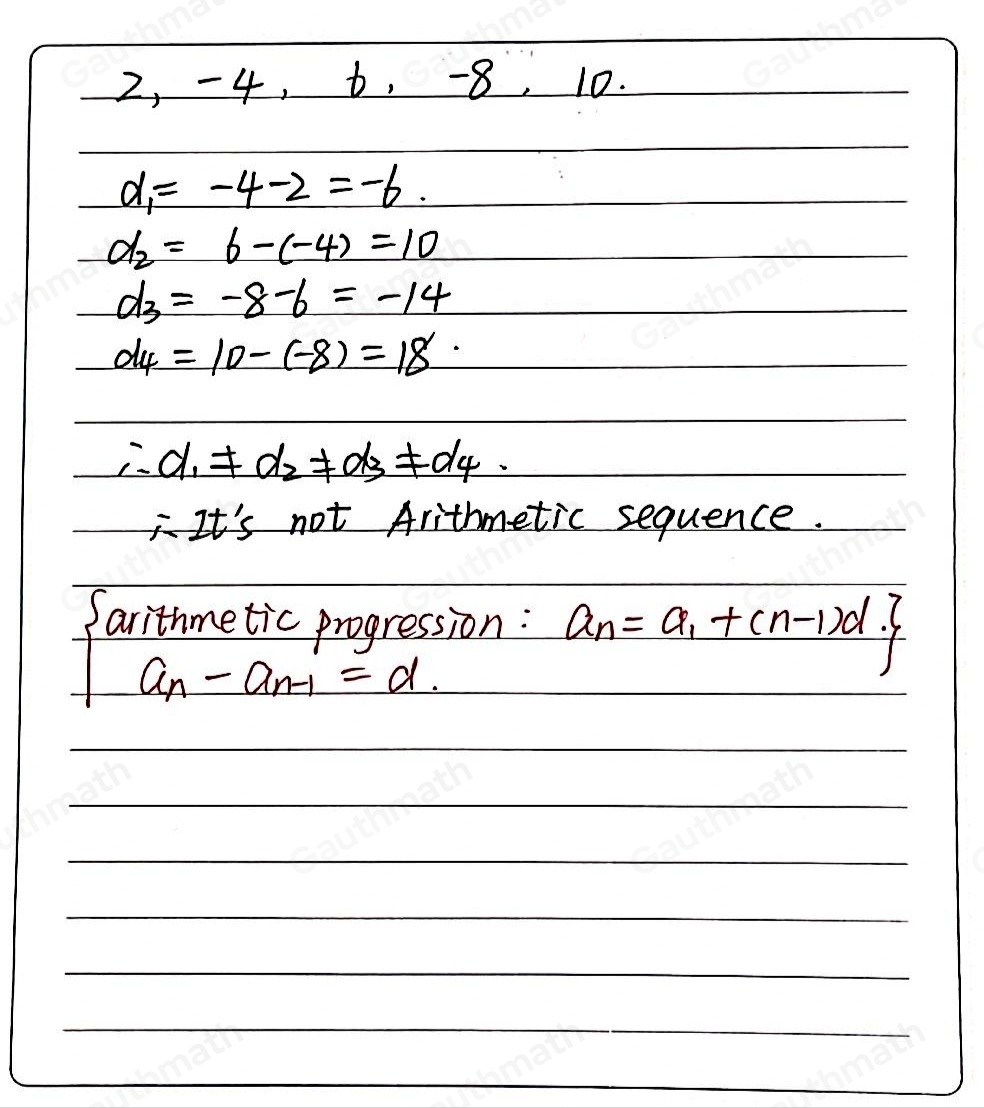 2, -4, 6, -8, 10.
d₁= -4-2 = -6.
d₂ = 6-(-4) = 10
d₃ = -8-6 = -14
d₄ = 10-(-8) = 18.
∴ d₁ ≠ d₂ ≠ d₃ ≠ d₄.
∴ It's not Arithmetic sequence.
{arithmetic progression: aₙ = a₁ + (n-1)d.}
aₙ - aₙ₋₁ = d.
Gauthmath